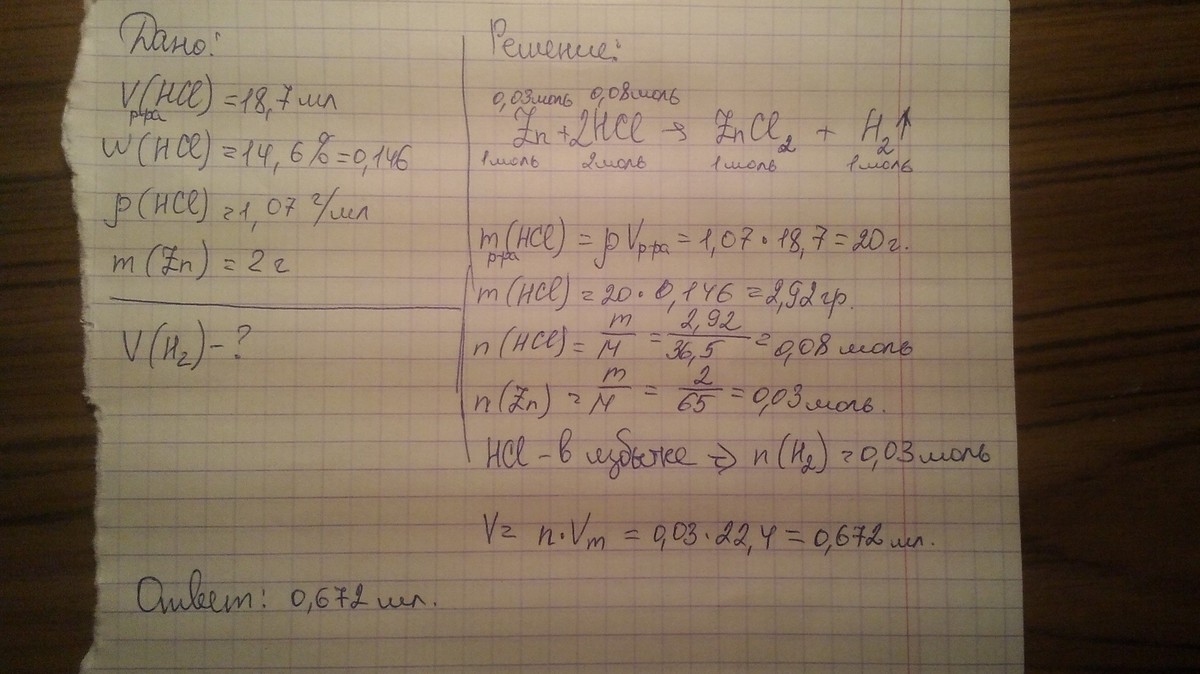 Дано:
V(HCl) = 18,7 мл
р-ра
w(HCl) = 14,6% = 0,146
ρ(HCl) = 1,07 г/мл
m(Zn) = 2 г
V(H₂) - ?
Решение:
0,03моль 0,08моль
Zn + 2HCl → ZnCl₂ + H₂↑
1моль 2моль 1моль 1моль
m(HCl) = ρ Vр-ра = 1,07 · 18,7 = 20 г.
р-ра
m(HCl) = 20 · 0,146 = 2,92 гр.
n(HCl) = m/M = 2,92/36,5 = 0,08 моль
n(Zn) = m/M = 2/65 = 0,03 моль.
HCl - в избытке ⇒ n(H₂) = 0,03 моль
V = n · Vm = 0,03 · 22,4 = 0,672 мл.
Ответ: 0,672 мл.